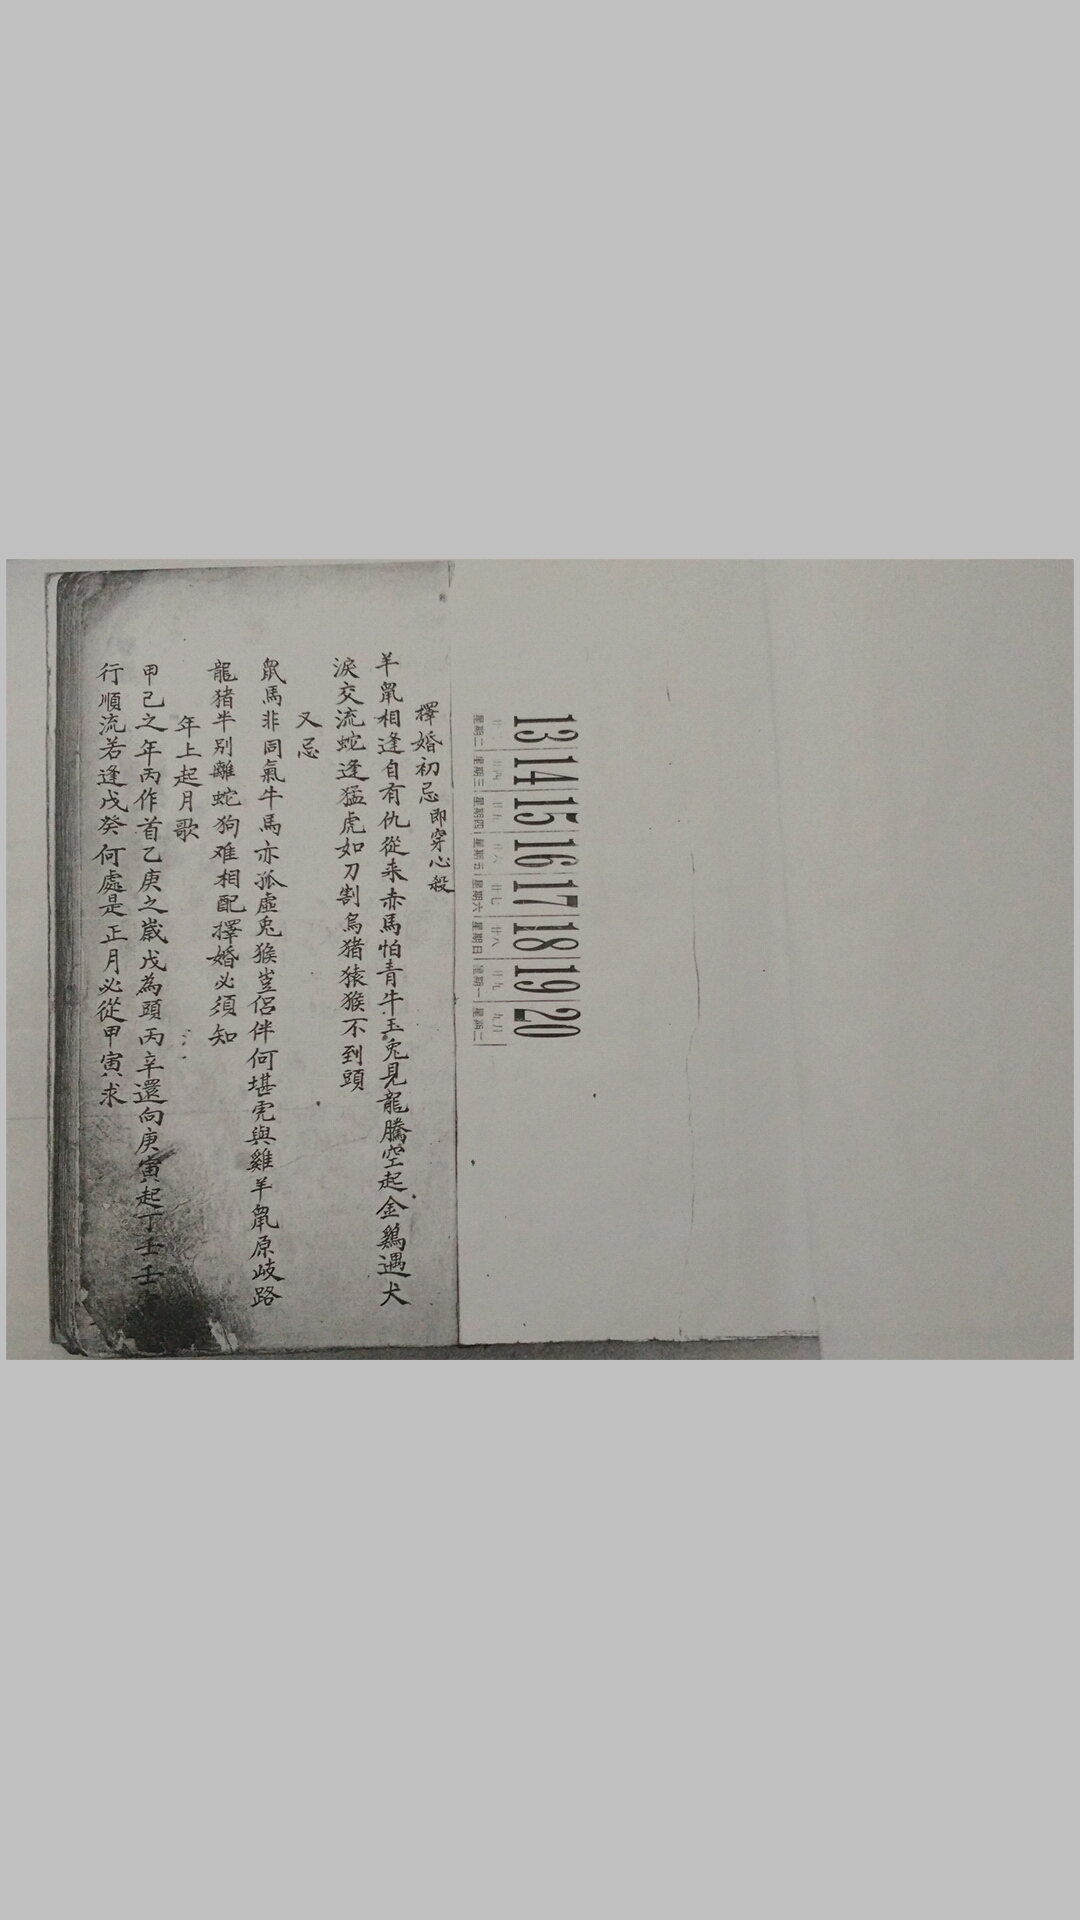 擇婚初忌即穿心殺
羊鼠相逢自有仇從来赤馬怕青牛玉兎見龍騰空起金鷄遇犬
淚交流蛇逢猛虎如刀割烏猪猿猴不到頭
又忌
鼠馬非同氣牛馬亦孤虛兎猴豈侶伴何堪虎與雞羊鼠原岐路
龍猪半別離蛇狗难相配擇婚必須知
年上起月歌
甲己之年丙作首乙庚之歲戊為頭丙辛還向庚寅起丁壬壬
行順流若逢戊癸何處是正月必從甲寅求
13 14 15 16 17 18 19 20
廿四 廿五 廿六 廿七 廿八 廿九 九月
星期二 星期三 星期四 星期五 星期六 星期日 星期一 星期二